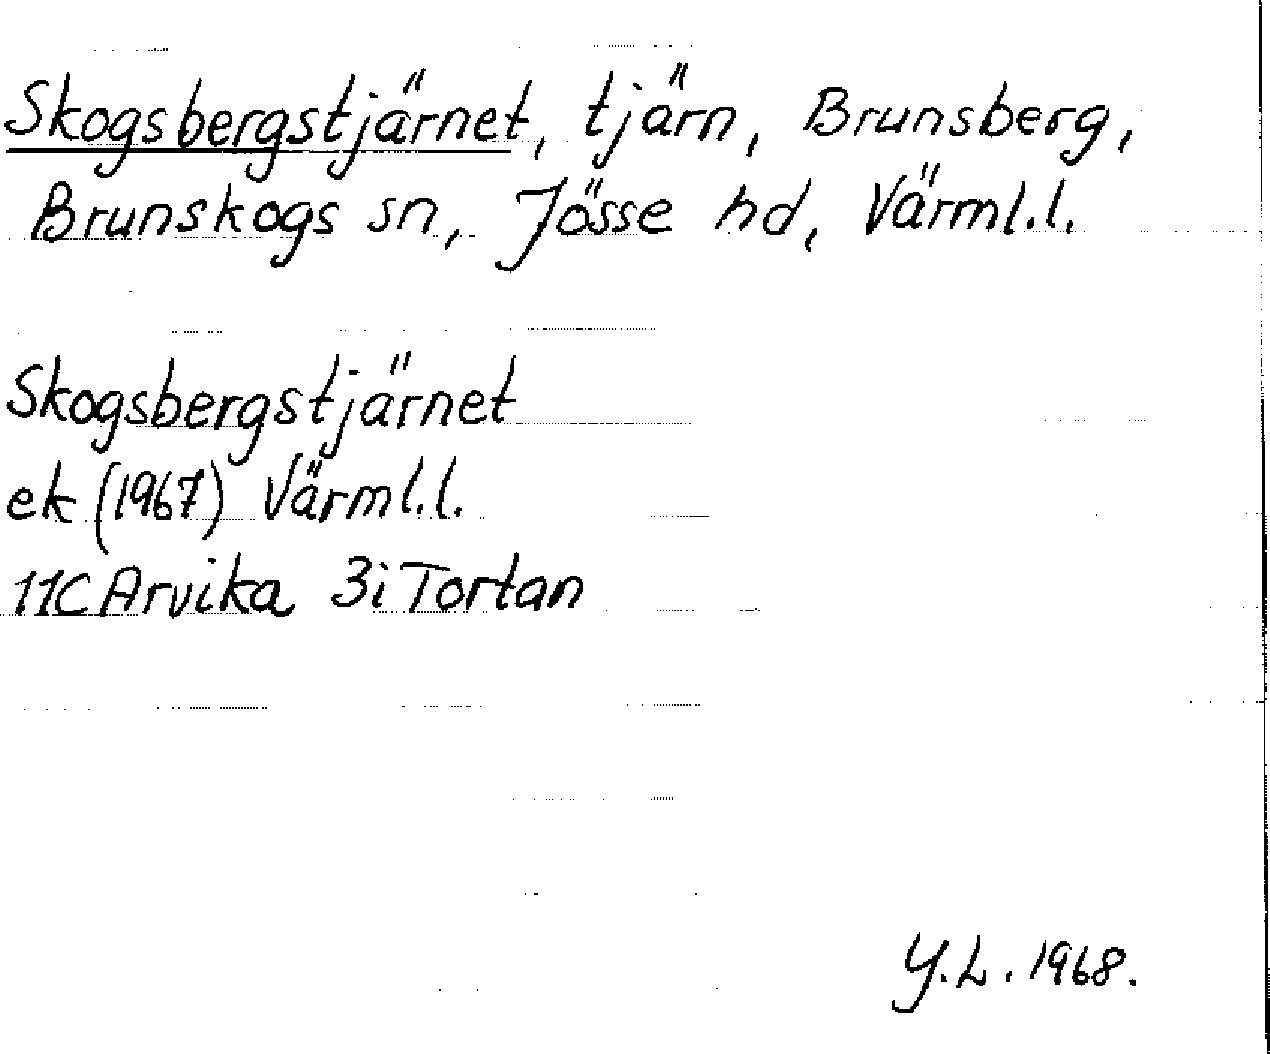 Skogsbergstjärnet, tjärn, Brunsberg,
Brunskogs sn, Jösse hd, Värml.l.
Skogsbergstjärnet
ek (1967) Värml.l.
11C Arvika 3i Tortan
Y.L. 1968.